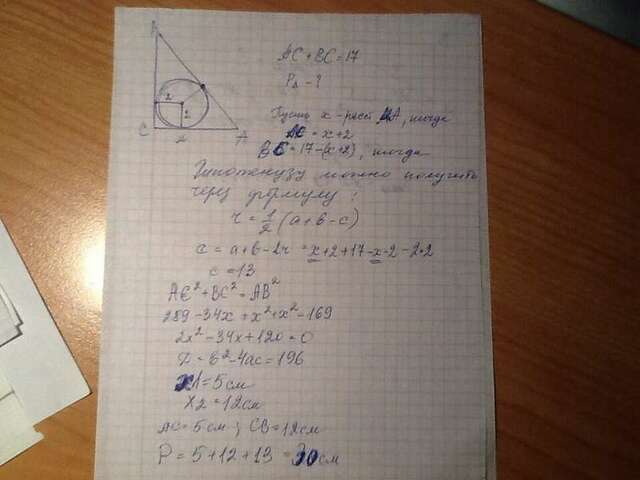 AC + BC = 17
P△ - ?
Пусть x - расст MA, тогда
AC = x+2
BC = 17-(x+2), тогда
Гипотенузу можно получить
через формулу:
r = 1/2 (a+b-c)
c = a+b-2r = x+2+17-x-2-2·2
c = 13
AC² + BC² = AB²
289-34x+x²+x²=169
2x²-34x+120=0
D = b²-4ac = 196
x1 = 5 см
x2 = 12 см
AC = 5 см; CB = 12 см
P = 5+12+13 = 30 см
2
2
C
A